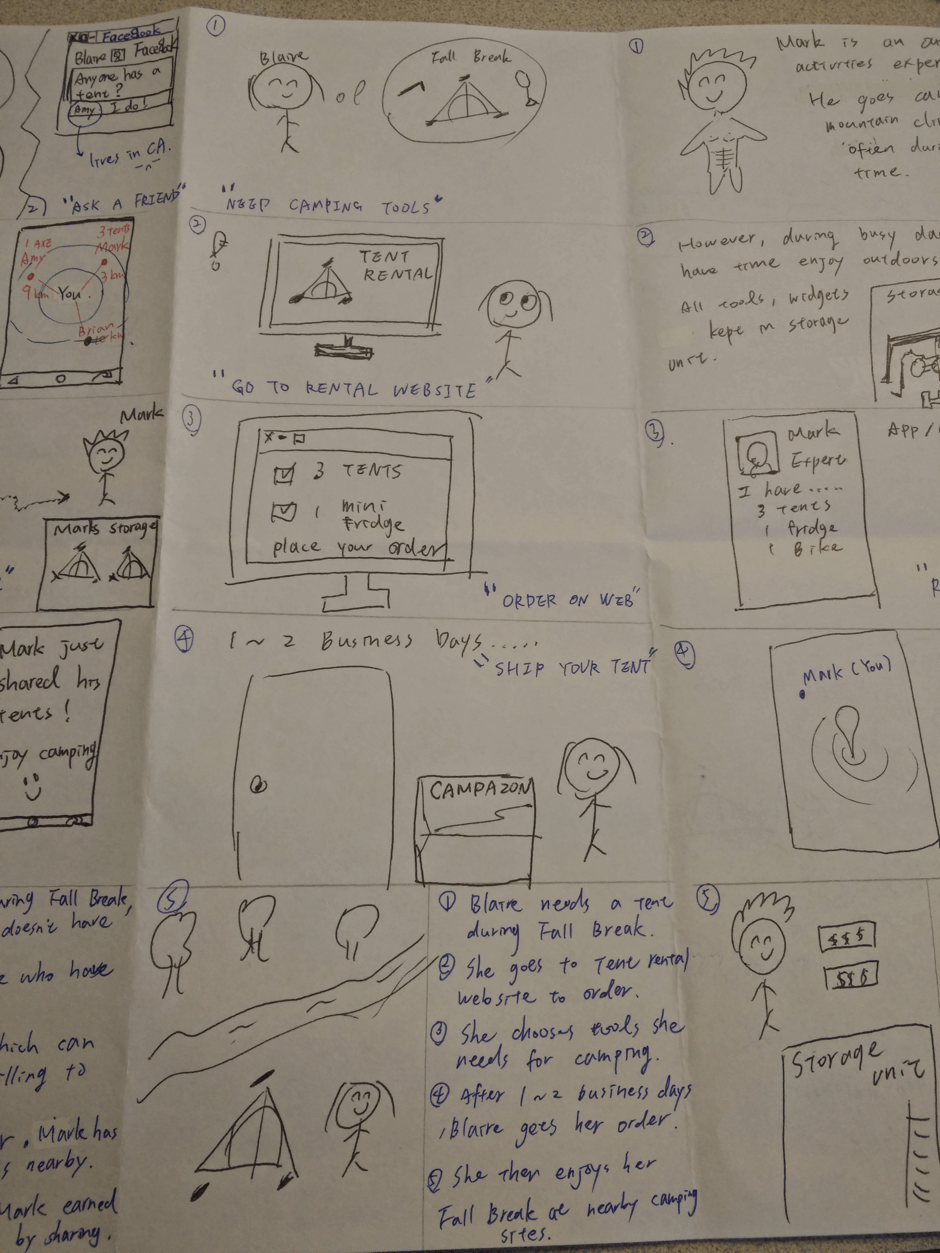 FaceBook
Blaire FaceBook
Anyone has a
tent?
Amy I do!
lives in CA.
2) "ASK A FRIEND"
1 AXE
Amy
9 km
3 tents
Mark
3 km
You.
Brian
km
Mark
Marks storage
Mark just
shared his
tents!
joy camping
ring Fall Break,
doesn't have
who have
hich can
lling to
r. Mark has
s nearby.
Mark earned
by sharing.
①
Blaire
Fall Break
"NEED CAMPING TOOLS"
②
TENT
RENTAL
"GO TO RENTAL WEBSITE"
③
3 TENTS
1 mini
fridge
place your order
"ORDER ON WEB"
④ 1 ~ 2 Business Days.....
"SHIP YOUR TENT"
CAMPAZON
⑤
① Blaire needs a tent
during Fall Break.
② She goes to Tent rental
website to order.
③ She chooses tools she
needs for camping.
④ After 1 ~ 2 business days
, Blaire gets her order.
⑤ She then enjoys her
Fall Break at nearby camping
sites.
①
Mark is an
activities exper
He goes
mountain
often
time.
②
However, during busy
have time enjoy outdoors
All tools, widgets
kept in storage
unit.
Storag
③.
Mark
Expert
I have.....
3 tents
1 fridge
1 Bike
APP /
"R
④
Mark (You)
⑤
$$$
$$$
Storage
unit